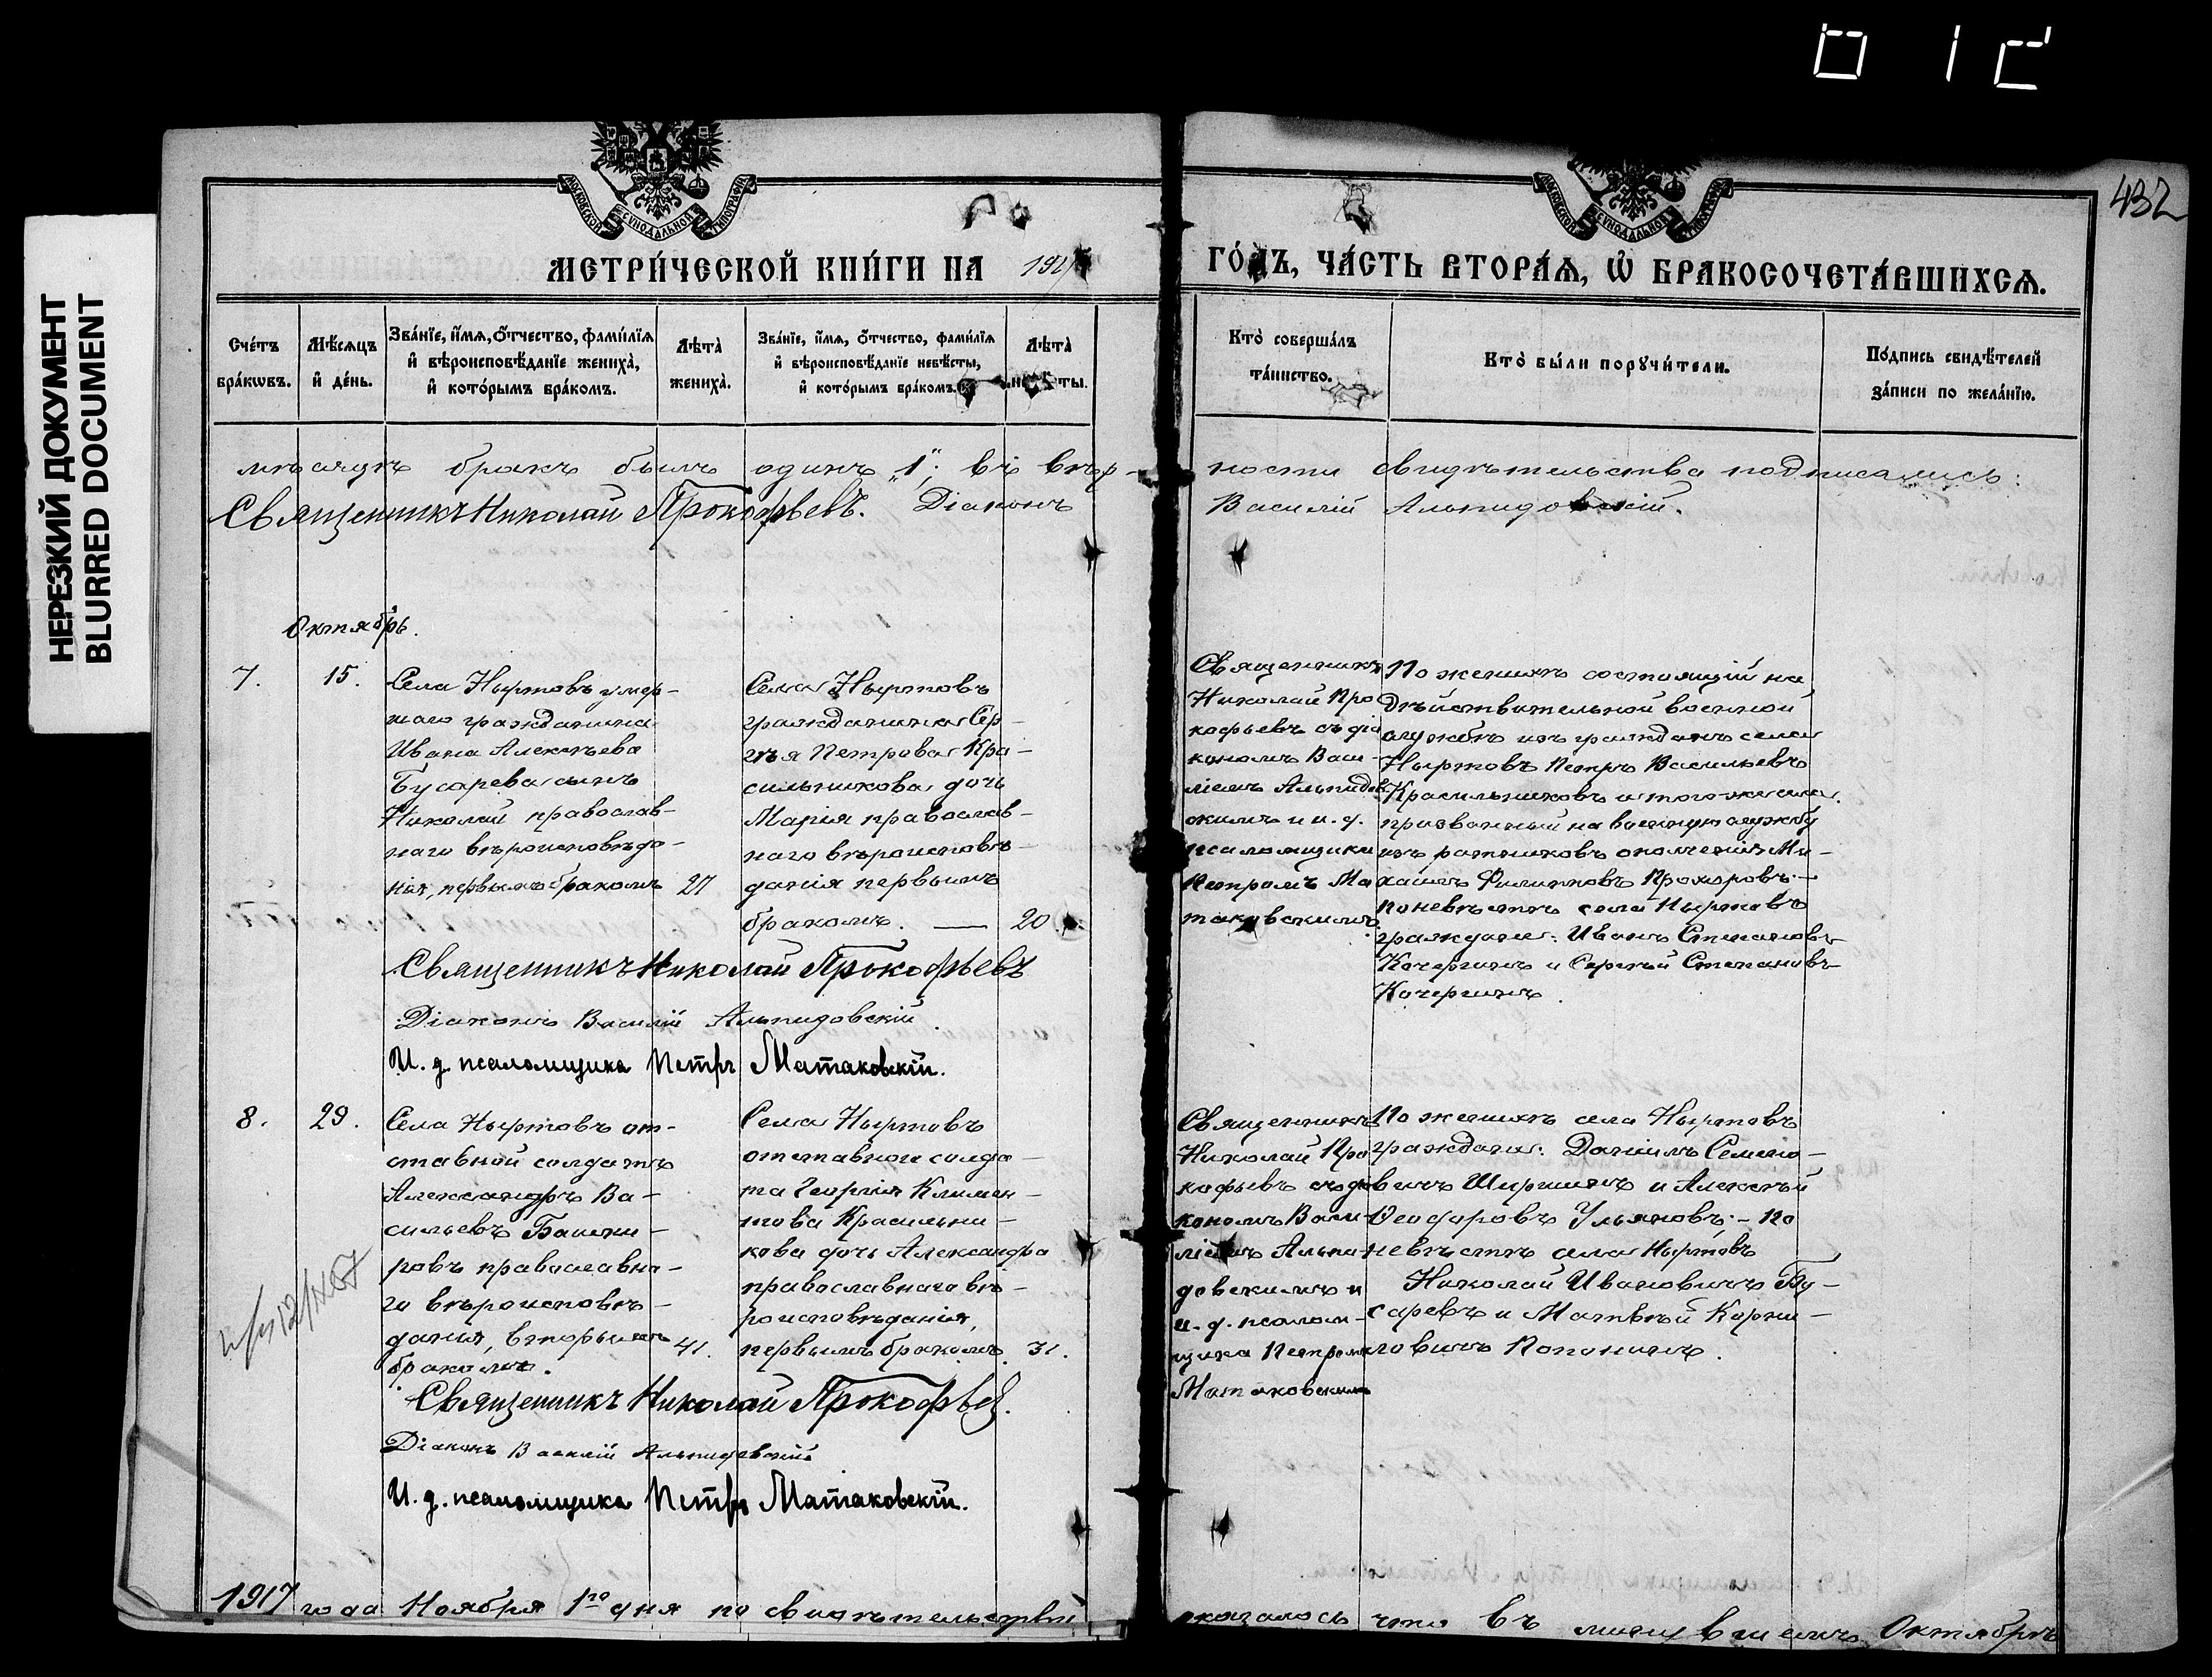 432
НЕРЕЗКИЙ ДОКУМЕНТ
BLURRED DOCUMENT
МОСКОВСКОЙ СУНОДАЛЬНОЙ ТИПОГРАФІИ
МОСКОВСКОЙ СУНОДАЛЬНОЙ ТИПОГРАФІИ
МЕТРИ́ЧЕСКОЙ КНИ́ГИ НА 1917
ГО́ДЪ, ЧА́СТЬ ВТОРА́Я, Ѽ БРАКОСОЧЕТА́ВШИХСЯ.
Счётъ бра́кωвъ.
Мѣ́сяцъ и҆ де́нь.
Зва́нїе, и҆́мя, ѻ҆́тчество, фами́лїя и҆ вѣроисповѣ́данїе жениха̀, и҆ кото́рымъ бра́комъ.
Лѣта̀ жениха̀.
Зва́нїе, и҆́мя, ѻ҆́тчество, фами́лїя и҆ вѣроисповѣ́данїе невѣ́сты, и҆ кото́рымъ бра́комъ.
Лѣта̀ невѣ́сты.
Кто̀ соверша́лъ та́инство.
Кто̀ бы́ли порꙋчи́тели.
По́дпись свидѣ́телей за́писи по жела́нїю.
мѣсяцѣ бракъ былъ одинъ „1“; въ вѣр-
ности свидѣтельства подписались:
Священникъ Николай Прокофьевъ. Діаконъ
Василій Альпидовскій.
Октябрь.
7.
15.
Села Ныртовъ умер-
шаго гражданина
Ивана Алексѣева
Бусарева сынъ
Николай православ-
наго вѣроисповѣда-
нія, первымъ бракомъ
27
Села Ныртовъ
гражданина Сер-
гѣя Петрова Кра-
сильникова дочь
Марія православ-
наго вѣроисповѣ-
данія первымъ
бракомъ. —
20
Священникъ
Николай Про
кофьевъ съ діа
кономъ Васи-
ліемъ Альпидов
скимъ и и. д.
псаломщика
Петромъ Ма
таковскимъ.
По женихѣ состоящій на
дѣйствительной военной
службѣ изъ гражданъ села
Ныртовъ Петръ Васильевъ
Красильниковъ и того-же села
призванный на военную службу
изъ ратниковъ ополченія Ми-
хаилъ Филипповъ Прохоровъ; —
по невѣстѣ села Ныртовъ
граждане: Иванъ Степановъ
Кочергинъ и Сергѣй Степановъ
Кочергинъ.
Священникъ Николай Прокофьевъ
Діаконъ Василій Альпидовскій.
И. д. псаломщика Петръ Матаковскій.
8.
29.
Села Ныртовъ от-
ставной солдатъ
Александръ Ва-
сильевъ Башки-
ровъ православна-
го вѣроисповѣ-
данія, вторымъ
бракомъ.
41.
Села Ныртовъ
отставного солда-
та Георгія Климен-
това Красильни-
кова дочь Александра
православнаго вѣ-
роисповѣданія,
первымъ бракомъ.
31.
Священникъ
Николай Про
кофьевъ съ діа
кономъ Васи-
ліемъ Альпи
довскимъ и
и. д. псалом-
щика Петромъ
Матаковскимъ
По женихѣ села Ныртовъ
граждане: Даніилъ Семено-
вичъ Ширшинъ и Алексѣй
Ѳеодоровъ Ульяновъ; — по
невѣстѣ села Ныртовъ
Николай Ивановичъ Бу-
саревъ и Матвѣй Корни-
ловичъ Папонинъ.
Священникъ Николай Прокофьев.
Діаконъ Василій Альпидовскій
И. д. псаломщика Петръ Матаковскій.
1917 года Ноября 1го дня по свидѣтельству
оказалось что въ минувшемъ Октябрѣ